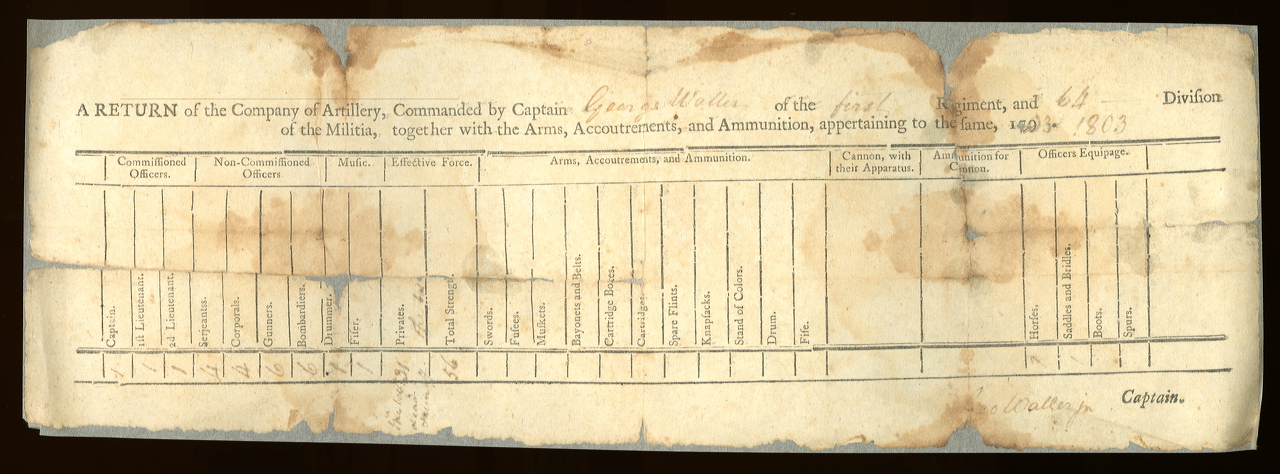 A RETURN of the Company of Artillery, Commanded by Captain George Waller of the first Regiment, and 64 Division
of the Militia, together with the Arms, Accoutrements, and Ammunition, appertaining to the ſame, 1803
Commiſſioned Officers.
Non-Commiſſioned Officers
Muſic.
Effective Force.
Arms, Accoutrements, and Ammunition.
Cannon, with their Apparatus.
Ammunition for Cannon.
Officers Equipage.
Captain.
1ſt Lieutenant.
2d Lieutenant.
Serjeants.
Corporals.
Gunners.
Bombardiers.
Drummer.
Fifer.
Privates.
Total Strength.
Swords.
Fuſees.
Muſkets.
Bayonets and Belts.
Cartridge Boxes.
Cartridges.
Spare Flints.
Knapſacks.
Stand of Colors.
Drum.
Fife.
Horſes.
Saddles and Bridles.
Boots.
Spurs.
1 1 1 4 4 6 6 1 1 56 1
Geo Waller jr Captain.